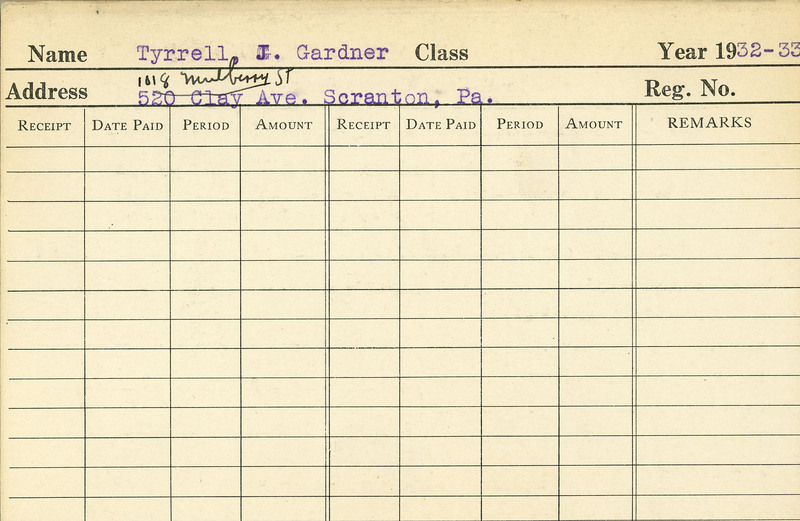 Name Tyrrell, J. Gardner Class Year 1932-33
1018 Mulberry ST
Address 520 Clay Ave. Scranton, Pa. Reg. No.
RECEIPT DATE PAID PERIOD AMOUNT RECEIPT DATE PAID PERIOD AMOUNT REMARKS